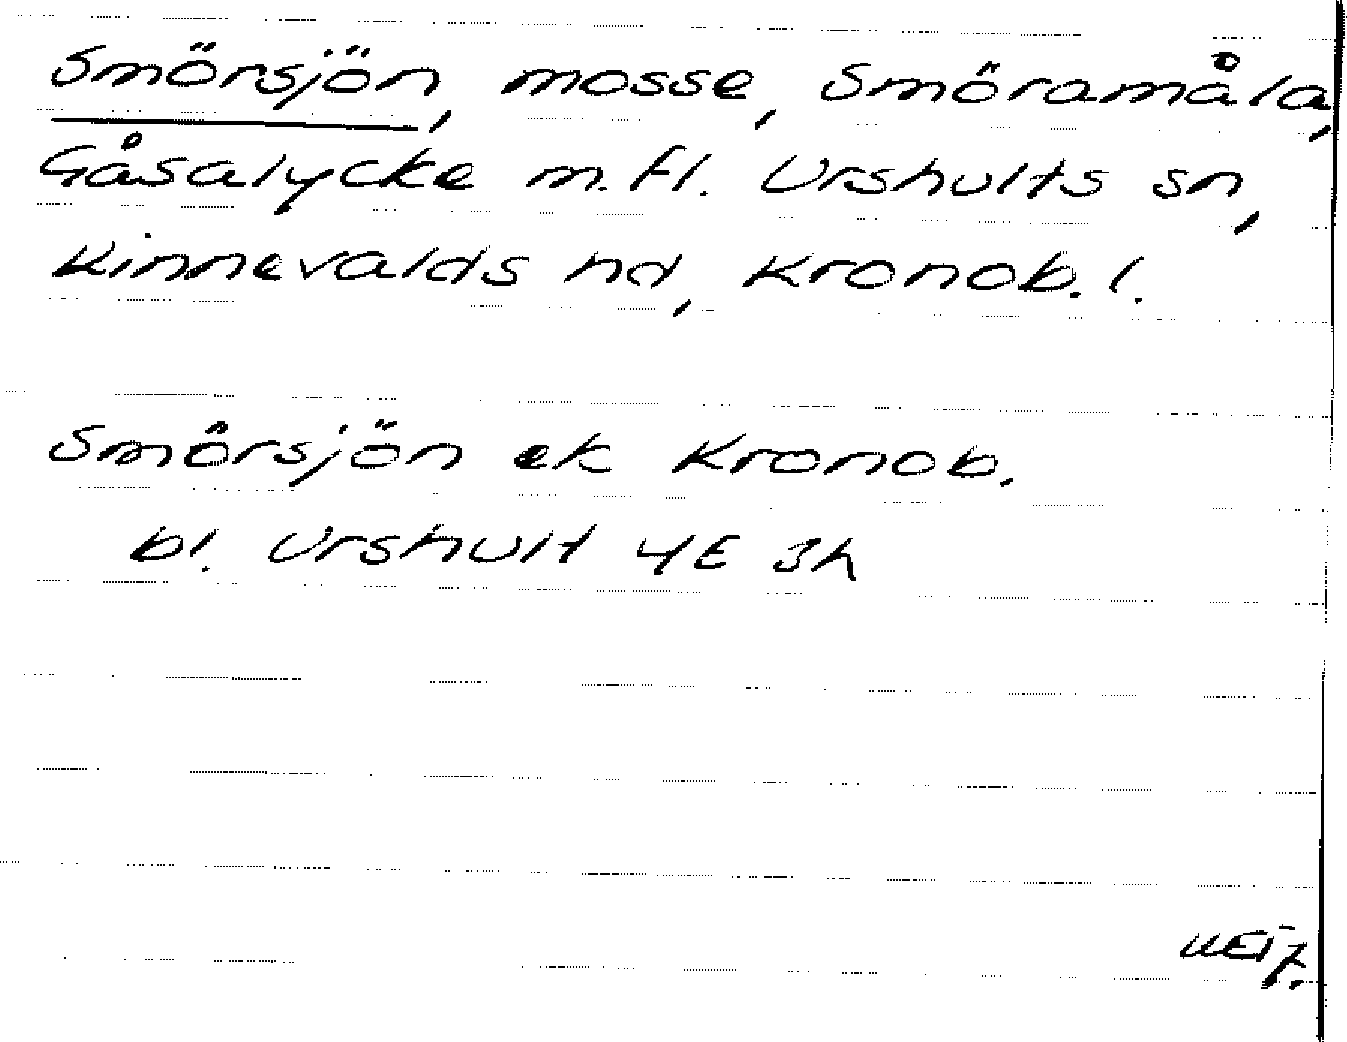 Smörsjön, mosse, Smöramåla,
Gåsalycke m.fl. Urshults sn,
Kinnevalds hd, Kronob. l.
Smörsjön ek Kronob.
bl. Urshult 4E 3h